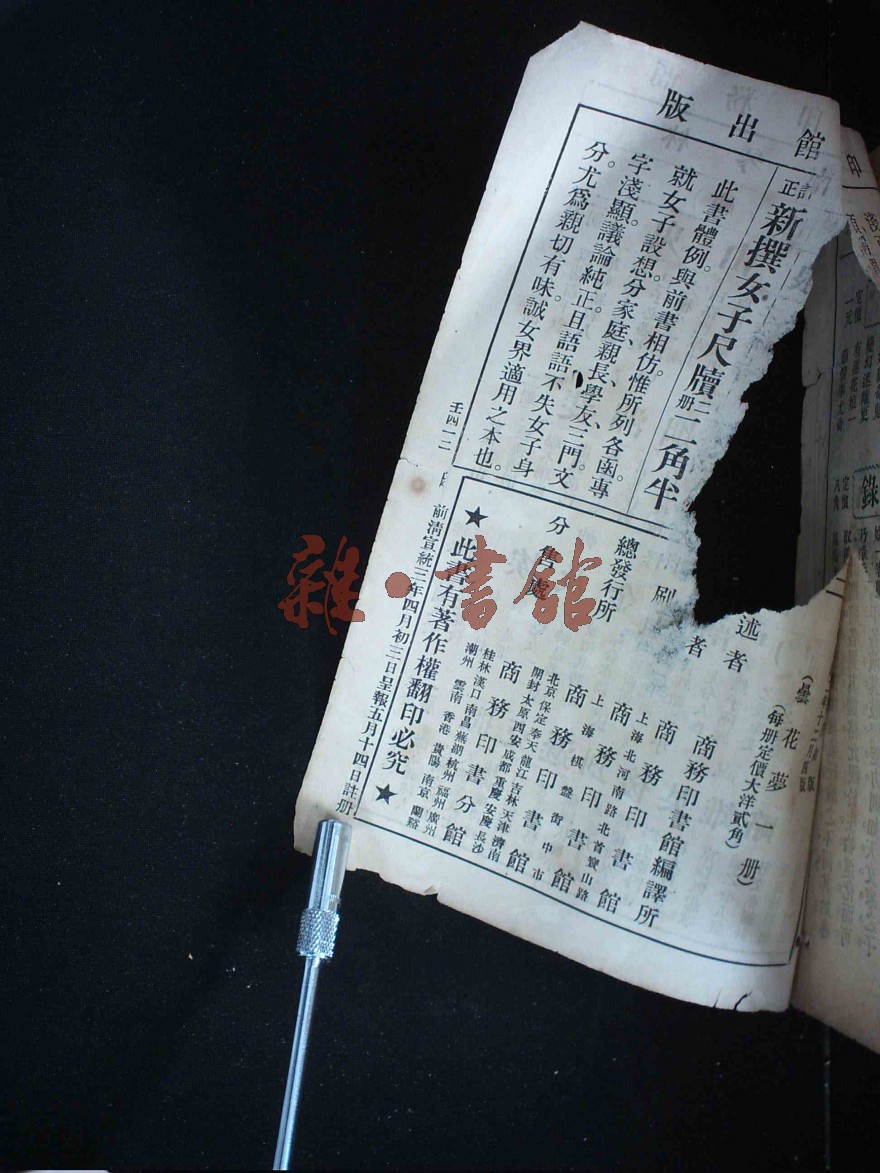 館出版
訂正
新撰女子尺牘 二册 二角半
此書體例。與前書相仿。惟所列各函專
就女子設想。分家庭、親長、學友、三門。文
字淺顯。議論純正。且語語不失女子身
分。尤爲親切有味。誠女界適用之本也。
壬四一二
(曇花夢一册)
(每册定價大洋貳角)
述者 商務印書館編譯所
刷者 商務印書館
上海北河南路北首寶山路
總發行所 商務印書館
上海棋盤街中市
分售處 商務印書分館
北京 保定 奉天 龍江 吉林 天津 濟南
開封 太原 西安 成都 重慶 安慶 長沙
桂林 漢口 南昌 蕪湖 杭州 福州 廣州
潮州 雲南 香港 貴陽 南京 蘭谿
★此書有著作權翻印必究★
前清宣統三年四月初三日呈報五月十四日註册
印
錄
定價
一元
定價
八角
雜·書館